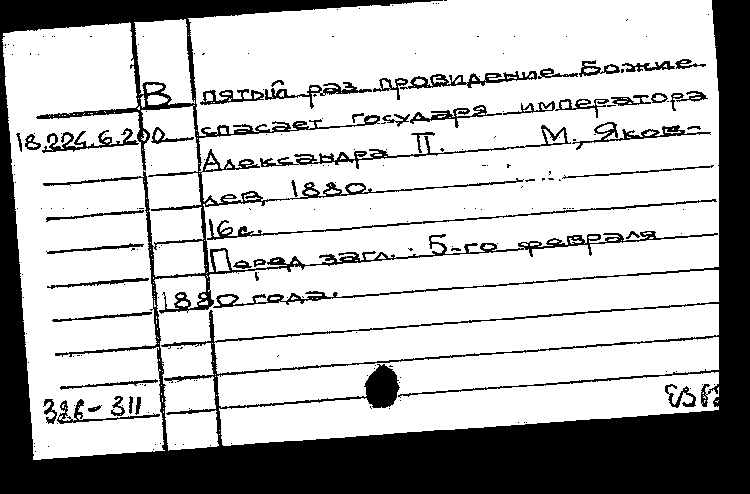 В пятый раз провидение Божие
18.224.6.200 спасает государя императора
Александра II. М., Яков-
лев, 1880.
16с.
Перед загл.: 5-го февраля
1880 года.
386-311